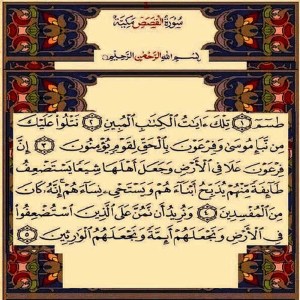 سُورَةُ القَصَصِ مَكِّيَّة
بِسْمِ اللَّهِ الرَّحْمَٰنِ الرَّحِيمِ
طسٓمٓ ۝١ تِلْكَ ءَايَٰتُ الْكِتَٰبِ الْمُبِينِ ۝٢ نَتْلُوا۟ عَلَيْكَ
مِن نَّبَإِ مُوسَىٰ وَفِرْعَوْنَ بِالْحَقِّ لِقَوْمٍ يُؤْمِنُونَ ۝٣ إِنَّ
فِرْعَوْنَ عَلَا فِي الْأَرْضِ وَجَعَلَ أَهْلَهَا شِيَعًا يَسْتَضْعِفُ
طَآئِفَةً مِّنْهُمْ يُذَبِّحُ أَبْنَآءَهُمْ وَيَسْتَحْيِۦ نِسَآءَهُمْ إِنَّهُۥ كَانَ
مِنَ الْمُفْسِدِينَ ۝٤ وَنُرِيدُ أَن نَّمُنَّ عَلَى الَّذِينَ اسْتُضْعِفُوا۟
فِي الْأَرْضِ وَنَجْعَلَهُمْ أَئِمَّةً وَنَجْعَلَهُمُ الْوَٰرِثِينَ ۝٥